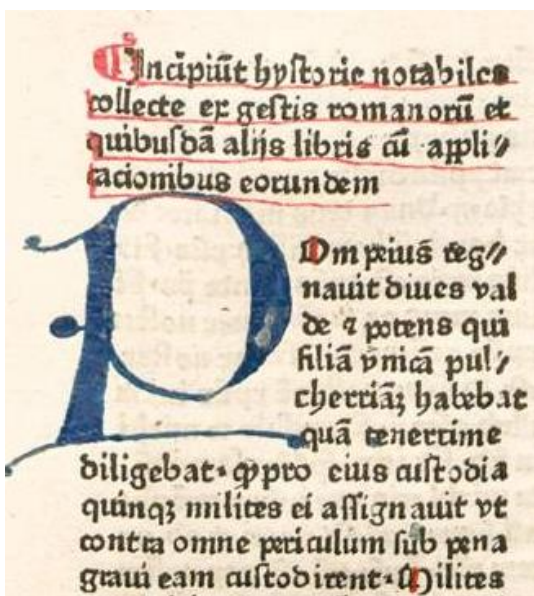 Incipiūt hystorie notabiles
collecte ex gestis romanorū et
quibusdā aliis libris cū appli⸗
cacionibus eorundem
POmpeius reg⸗
nauit diues val
de ⁊ potens qui
filiā vnicā pul⸗
cherriāꝫ habebat
quā tenerrime
diligebat. ꝙ pro eius custodia
quinqꝫ milites ei assignauit vt
contra omne periculum sub pena
graui eam custodirent. Milites